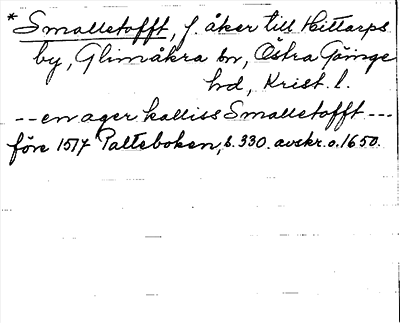 * Smalletofft, f. åker till Hittarps
by, Glimåkra sn, Östra Göinge
hd, Krist. l.
-- en ager kalliss Smalletofft ---
före 1517 Palteboken, s. 330. avskr. o. 1650.